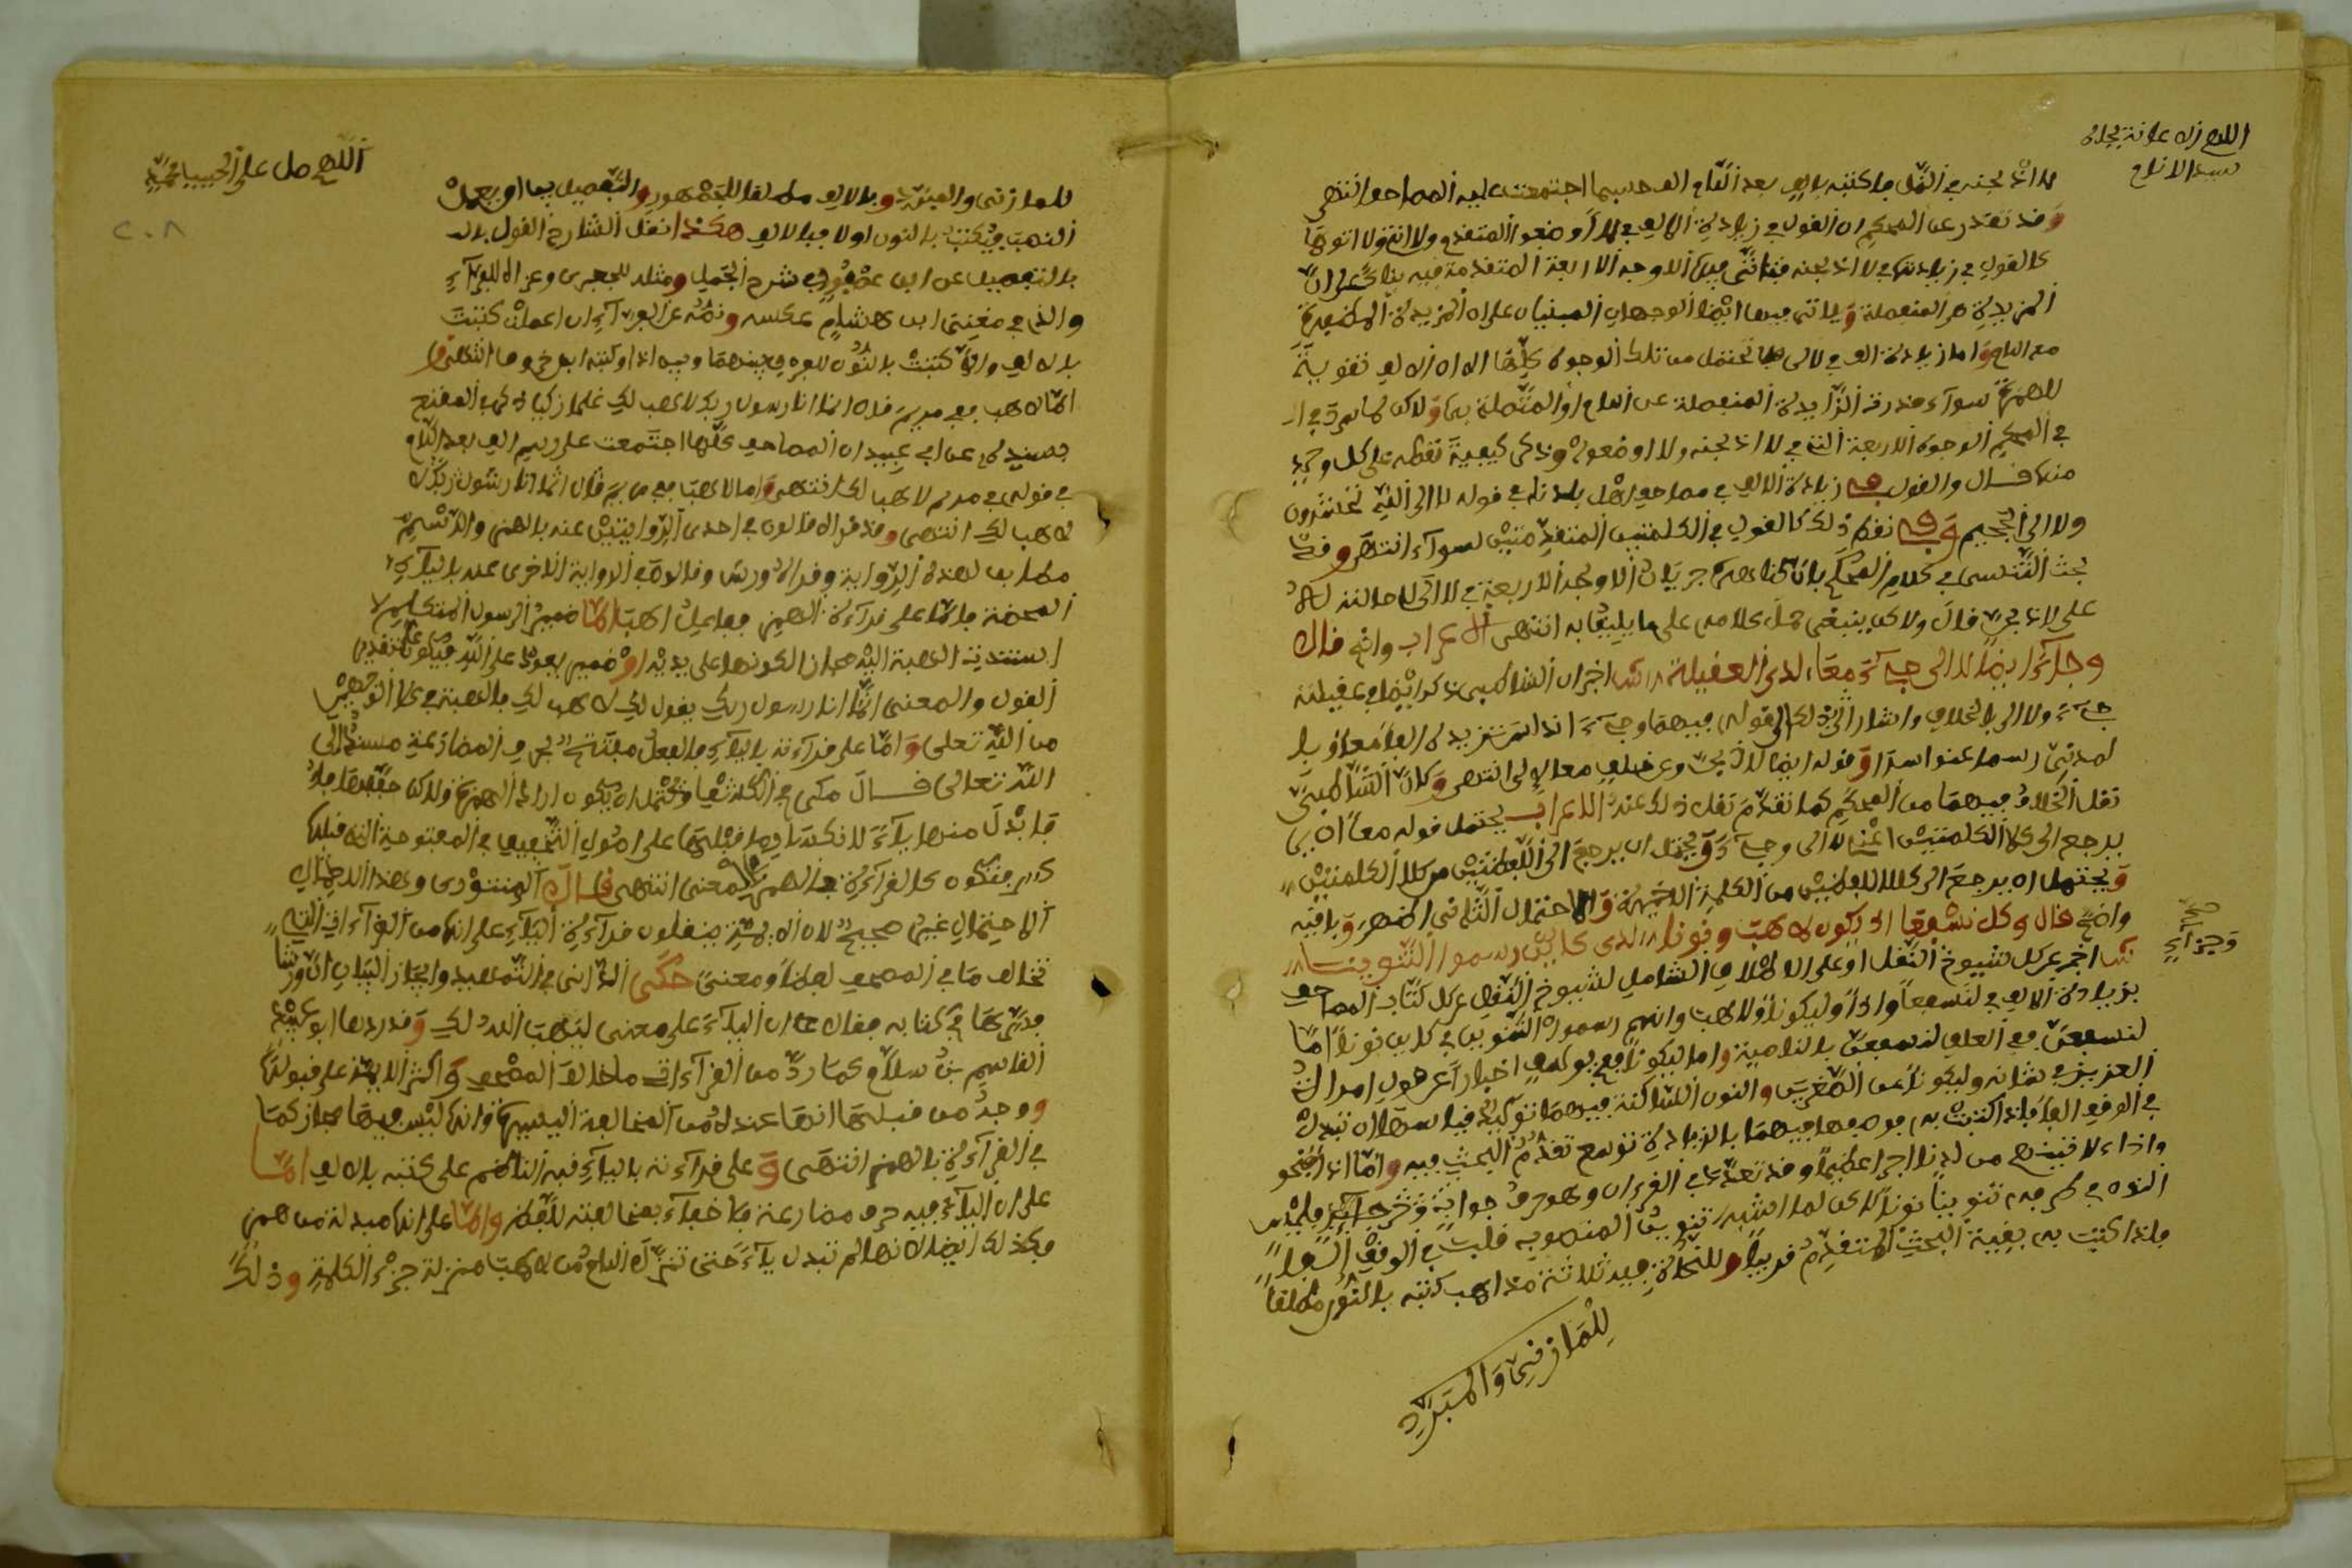 اللهم
سيد الانام
لااذبحنه في النمل ما كتبته بالف بعد اللام الف حسبما اجتمعت عليه المصاحف انتهى
وقد تقدر عن المحكم ان القول في زيادة الالف في لا أوضعوا المتقدم ولاانتم ولاتوها
كالقول في زيادتها في لااذبحنه فتاتى فيها الاوجه الاربعة المتقدمة فيه بناء على ان
المزيدة هي المنفصلة وياتى فيها ايضا الوجهان المبنيان على ان المزيدة المضفرة
مع اللام واما زيادة الف في لالى فلا تحتمل من تلك الوجوه كلها الا ان الالف تقوية
للهمزة سواء قدرت الزايدة المنفصلة عن اللام او المتصلة بها ولاكن لما سرد في
في المحكم الوجوه الاربعة التي في لااذبحنه ولا اوضعوا وذكر كيفية نقطه على كل وجه
منها قال والقول في زيادة الالف في مصاحف اهل بلدنا في قوله لاالى الله تحشرون
ولاالى الجحيم وفي نقط ذلك كالقول في الكلمتين المتقدمتين سواء انتهى وقد
بحث التنسى في كلام المحكم بان ظاهره جريان الاوجه الاربعة في لاالى
قال ولاكن ينبغى حمل كلامه على ما يليق به انتهى الاعراب واضح قال
وجاء ايضا لاالى جاىء معا لدى العقيلة اخبر ان الشاطبى ذكر ايضا في عقيلته
جاىء ولاالى بالخلاف واشار الى ذلك بقوله فيهما وجاىء اندلس تزيده الفا معا وبا
لمدنى رسما عنوا سيرا وقوله ايضا انتهى وكان الشاطبى
نقل الخلاف فيهما من المحكم كما تقدم نقل ذلك عنه الاعراب يحتمل قوله معا ان
يرجع الى كلا الكلمتين اعنى لاالى وجاىء ويحتمل ان يرجع الى اللفظتين من كلا الكلمتين
ويحتمل ان يرجع الى كلا اللفظين من الكلمة الاخيرة والاحتمال الثانى اظهر وباقيه
واضح قال وكل نسفعا اذا يكون لاهب ونونا لدى كاين رسموا التنوينا
وجزاء
اخبر عن كل شيوخ النقل او على الاطلاق الشامل لشيوخ النقل عن كل كتاب المصاحف
بزيادة الالف في لنسفعا واذا وليكونا ولاهب وانهم رسموا التنوين في كاين نونا اما
لنسفعن ففى العلق لنسفعن بالناصية واما ليكونا ففى يوسف اخبارا عن قول امرات
العزيز في شانه وليكونا من الصغرين والنون الساكنة فيهما توكيدية قياسها ان تبدل
في الوقف الفا فلذا كتبت به فوصفها فيهما بالزيادة توسع تقدم البحث فيه واما اذا فنحو
واذا ءلاتينهم من لدنا اجرا عظيما وقد تعدد في القرءان وهو حرف جواب وجزاء
النون في طرفه تنوينا نونا لاكن لما اشبه تنوين المنصوب قلبت في الوقف الفا
فلذا كتبت به بقية البحث المتقدم قريبا وللنحاة فيه ثلاثة مذاهب كتبه بالنون مطلقا
للمازنى والمبرد
اللهم صل على الحبيب محمد
٢٠٨
للمازنى والمبرد وبالالف مطلقا للجمهور والتفصيل بها او يعمل
النصب فيكتب بالنون اولا فبالالف هكذا نقل الشارح القول
بالتفصيل عن ابن عصفور في شرح الجمل ومثله للجعبرى وعزاه للفراء
والذى في مغنى ابن هشام عكسه ونصه عن الفراء ان اعملت كتبت
بالالف والا كتبت بالنون للفرق بينهما وبين اذا وكتبه ابن خروف انتهى
اما لاهب ففى مريم قال انما انا رسول ربك لاهب لك غلما زكيا ذكر في المقنع
بسنده عن ابى عبيد ان المصاحف كلها اجتمعت على رسم الف بعد اللام
في قوله في مريم لاهب لك انتهى واما لاهب ففى مريم قال انما انا رسول ربك
لاهب لك انتهى وقد قراه قالون في احدى الروايتين عنه بالهمز والرسم
مطابق لهذه الرواية وقراه ورش وقالون في الرواية الاخرى عنه بالياء
المحضة فاما على قراءة الهمز ففاعل اهب اما ضمير الرسول المتكلم
اسندت الهبة اليه مجازا لكونها على يديه او ضمير يعود على الله فيكون على تقدير
القول والمعنى انما انا رسول ربك يقول لك لاهب لك فالهبة في كلا الوجهين
من الله تعلى واما على قراءته بالياء فالفعل مفتتح بحرف المضارعة مسند الى
الله تعالى قال مكى في الكشف ويحتمل ان يكون اراد الهمزة ولاكن خففها
فابدل منها ياء لانكسار ما قبلها على اصول التخفيف في المفتوحة التى قبلها
كسر فتكون كالقراءة بالهمز في المعنى انتهى قال المنتورى وهذا
الاحتمال غير صحيح لان الايمة ينقلون قراءة الياء على انها من القراءات التى
تخالف ما في المصحف لفظا ومعنى حكى الدانى في التمهيد وايجاز البيان ان ورشا
في كتابه فقال ان الياء على معنى ليهب الله لك وقد ردها ابو عبيد
القاسم بن سلام كما رد من القراءات ما خالف المصحف واكثر الايمة على قبولها
ووجه من قبلها انها عنده من المخالفة اليسيرة وانها ليس فيها مجاز كما
في القراءة بالهمز انتهى وعلى قراءته بالياء فيه الناظم على كتبه بالالف اما
على ان الياء فيه حرف مضارعة فلا خفاء بمخالفته للفظ واما على انها مبدلة من همز
فكذلك ايضا لانها لم تبدل ياء حتى تنزل اللام من لاهب منزلة جزء الكلمة وذلك